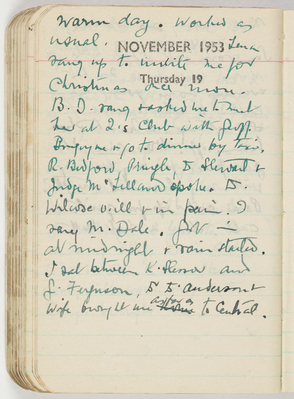 warm day. Worked as
usual.
NOVEMBER 1953 Lena
rang up to invite me for
Thursday 19
Christmas
B. D. rang & asked me to meet
her at 2's Club with Jeff
& to dinner by taxi.
R. Bedford, Pringle, D. Stewart &
Judge McClelland spoke. D.
Wilcox v ill & in pain. I
rang M. Dale. Got in
at midnight & rain started.
I sat between K. Slessor and
J. Ferguson, & D. Anderson &
wife brought me as far as to Central.